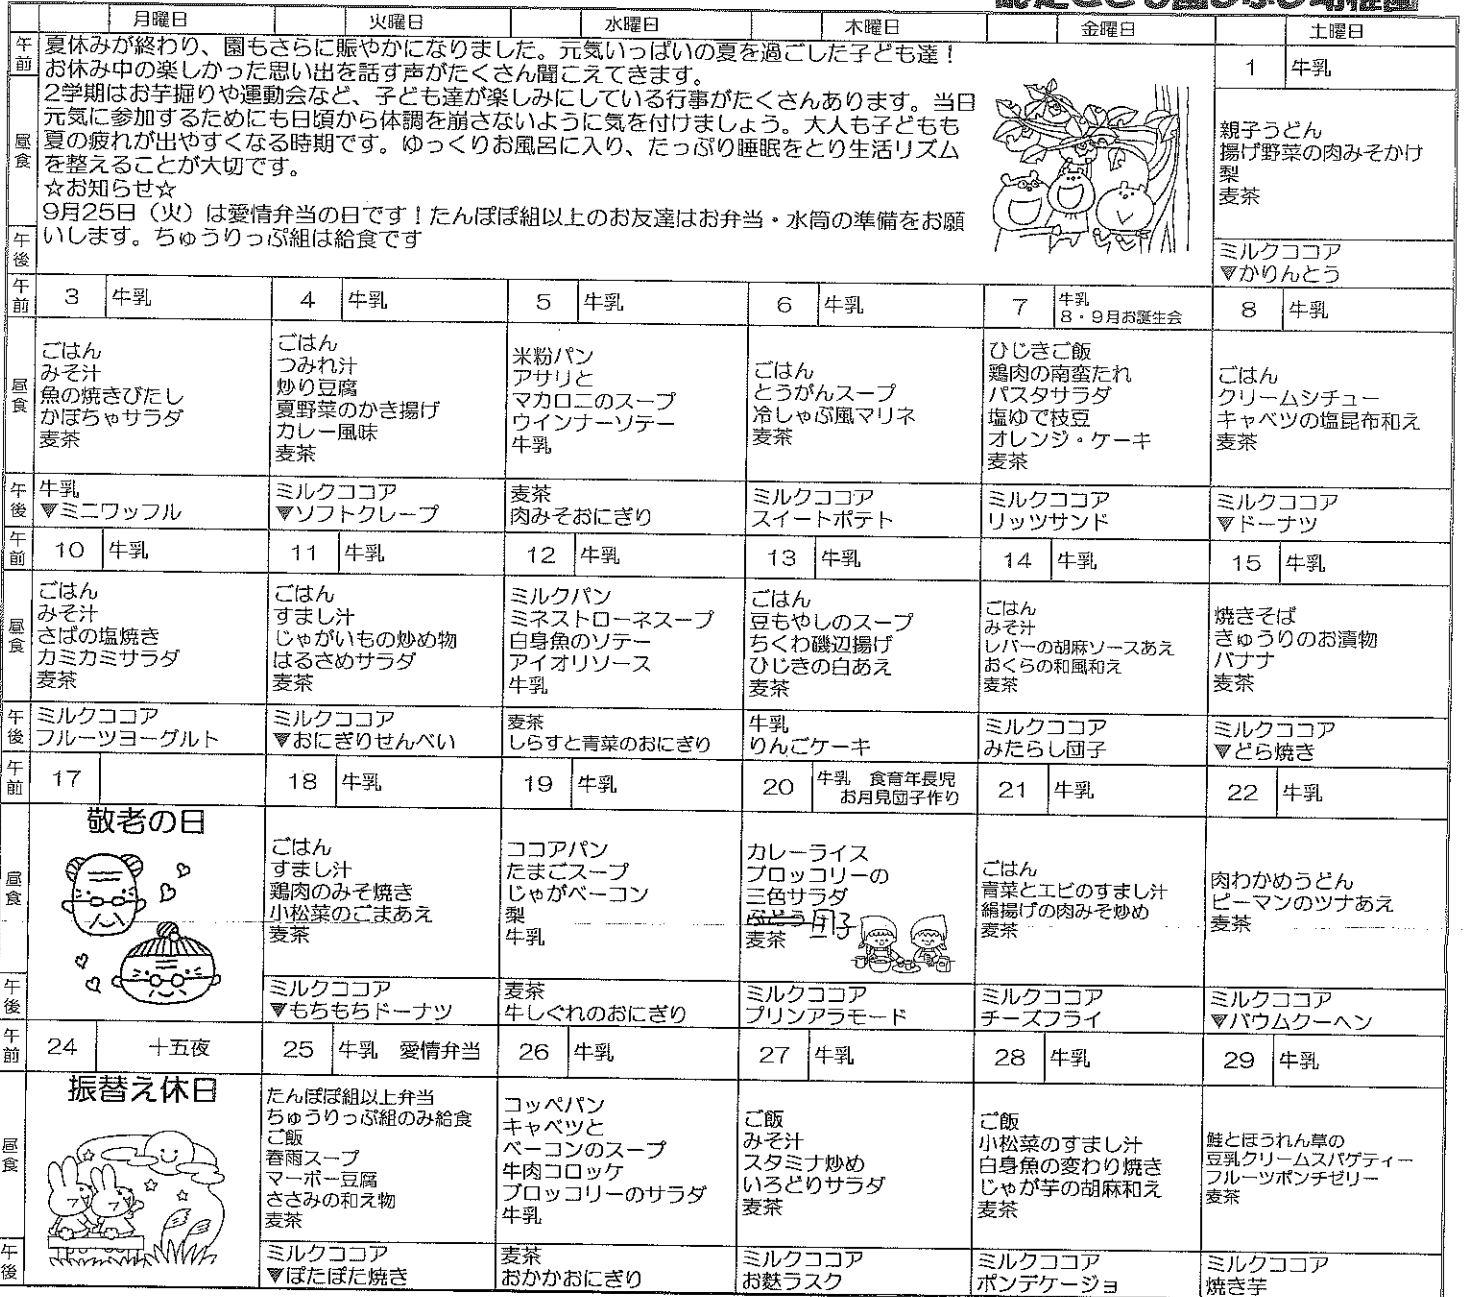 月曜日 火曜日 水曜日 木曜日 金曜日 土曜日
午前
夏休みが終わり、園もさらに賑やかになりました。元気いっぱいの夏を過ごした子ども達！
お休み中の楽しかった思い出を話す声がたくさん聞こえてきます。
2学期はお芋掘りや運動会など、子ども達が楽しみにしている行事がたくさんあります。当日
元気に参加するためにも日頃から体調を崩さないように気を付けましょう。大人も子どもも
夏の疲れが出やすくなる時期です。ゆっくりお風呂に入り、たっぷり睡眠をとり生活リズム
を整えることが大切です。
☆お知らせ☆
9月25日（火）は愛情弁当の日です！たんぽぽ組以上のお友達はお弁当・水筒の準備をお願
いします。ちゅうりっぷ組は給食です
1 牛乳
昼食
親子うどん
揚げ野菜の肉みそかけ
梨
麦茶
午後
ミルクココア
▼かりんとう
午前
3 牛乳
4 牛乳
5 牛乳
6 牛乳
7 牛乳
8・9月お誕生会
8 牛乳
昼食
ごはん
みそ汁
魚の焼きびたし
かぼちゃサラダ
麦茶
ごはん
つみれ汁
炒り豆腐
夏野菜のかき揚げ
カレー風味
麦茶
米粉パン
アサリと
マカロニのスープ
ウインナーソテー
牛乳
ごはん
とうがんスープ
冷しゃぶ風マリネ
麦茶
ひじきご飯
鶏肉の南蛮たれ
パスタサラダ
塩ゆで枝豆
オレンジ・ケーキ
麦茶
ごはん
クリームシチュー
キャベツの塩昆布和え
麦茶
午後
牛乳
▼ミニワッフル
ミルクココア
▼ソフトクレープ
麦茶
肉みそおにぎり
ミルクココア
スイートポテト
ミルクココア
リッツサンド
ミルクココア
▼ドーナツ
午前
10 牛乳
11 牛乳
12 牛乳
13 牛乳
14 牛乳
15 牛乳
昼食
ごはん
みそ汁
さばの塩焼き
カミカミサラダ
麦茶
ごはん
すまし汁
じゃがいもの炒め物
はるさめサラダ
麦茶
ミルクパン
ミネストローネスープ
白身魚のソテー
アイオリソース
牛乳
ごはん
豆もやしのスープ
ちくわ磯辺揚げ
ひじきの白あえ
麦茶
ごはん
みそ汁
レバーの胡麻ソースあえ
おくらの和風和え
麦茶
焼きそば
きゅうりのお漬物
バナナ
麦茶
午後
ミルクココア
フルーツヨーグルト
ミルクココア
▼おにぎりせんべい
麦茶
しらすと青菜のおにぎり
牛乳
りんごケーキ
ミルクココア
みたらし団子
ミルクココア
▼どら焼き
午前
17
18 牛乳
19 牛乳
20 牛乳 食育年長児
お月見団子作り
21 牛乳
22 牛乳
昼食
敬老の日
ごはん
すまし汁
鶏肉のみそ焼き
小松菜のごまあえ
麦茶
ココアパン
たまごスープ
じゃがベーコン
梨
牛乳
カレーライス
ブロッコリーの
三色サラダ
ぶどう 団子
麦茶
ごはん
青菜とエビのすまし汁
絹揚げの肉みそ炒め
麦茶
肉わかめうどん
ピーマンのツナあえ
麦茶
午後
ミルクココア
▼もちもちドーナツ
麦茶
牛しぐれのおにぎり
ミルクココア
プリンアラモード
ミルクココア
チーズフライ
ミルクココア
▼バウムクーヘン
午前
24 十五夜
25 牛乳 愛情弁当
26 牛乳
27 牛乳
28 牛乳
29 牛乳
昼食
振替え休日
たんぽぽ組以上弁当
ちゅうりっぷ組のみ給食
ご飯
春雨スープ
マーボー豆腐
ささみの和え物
麦茶
コッペパン
キャベツと
ベーコンのスープ
牛肉コロッケ
ブロッコリーのサラダ
牛乳
ご飯
みそ汁
スタミナ炒め
いろどりサラダ
麦茶
ご飯
小松菜のすまし汁
白身魚の変わり焼き
じゃが芋の胡麻和え
麦茶
鮭とほうれん草の
豆乳クリームスパゲティー
フルーツポンチゼリー
麦茶
午後
ミルクココア
▼ぽたぽた焼き
麦茶
おかかおにぎり
ミルクココア
お麩ラスク
ミルクココア
ポンデケージョ
ミルクココア
焼き芋